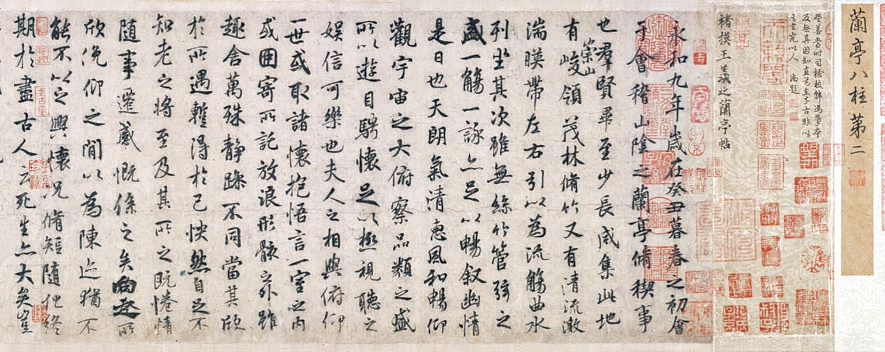 蘭亭八柱第二
褚摸王羲之蘭亭帖
永和九年歲在癸丑暮春之初會
于會稽山陰之蘭亭脩稧事
也群賢畢至少長咸集此地
有崇山峻領茂林脩竹又有清流激
湍暎帶左右引以為流觴曲水
列坐其次雖無絲竹管弦之
盛一觴一詠亦足以暢叙幽情
是日也天朗氣清惠風和暢仰
觀宇宙之大俯察品類之盛
所以遊目騁懷足以極視聽之
娛信可樂也夫人之相與俯仰
一世或取諸懷抱悟言一室之內
或因寄所託放浪形骸之外雖
趣舍萬殊靜躁不同當其欣
於所遇蹔得於己怏然自足不
知老之將至及其所之既惓情
隨事遷感慨係之矣向之所
欣俛仰之間以為陳迹猶不
能不以之興懷況脩短隨化終
期於盡古人云死生亦大矣豈